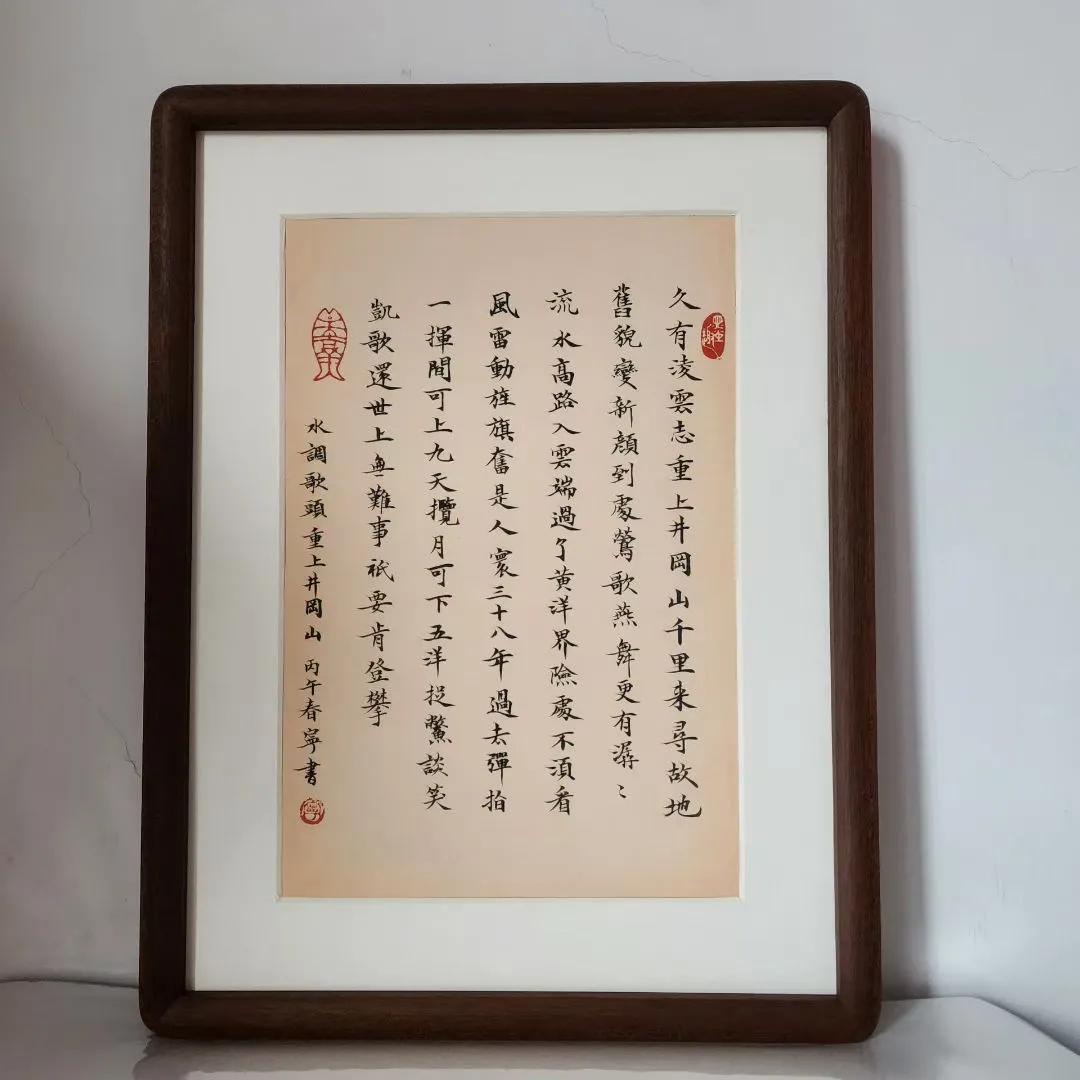 久有淩雲志重上井岡山千里来尋故地
舊貌變新顔到處鶯歌燕舞更有潺〻
流水高路入雲端過了黄洋界險處不須看
風雷動旌旗奮是人寰三十八年過去彈指
一揮間可上九天攬月可下五洋捉鱉談笑
凱歌還世上無難事祇要肯登攀
水調歌頭重上井岡山 丙午春寧書